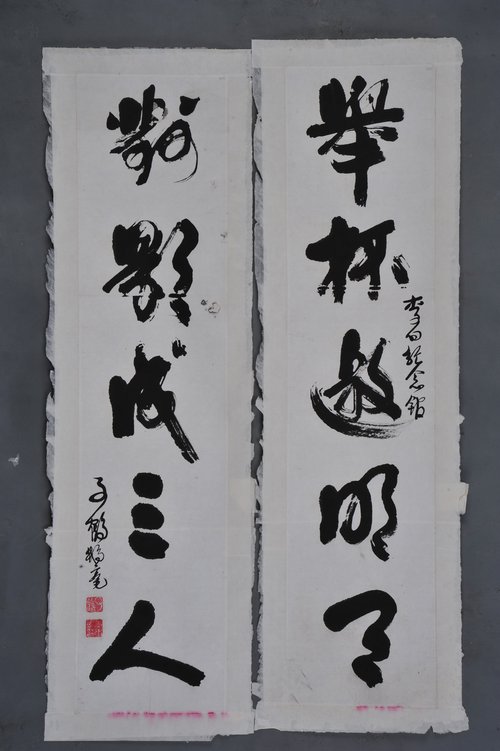 舉杯邀明月
李白紀念館
對影成三人
子鶴